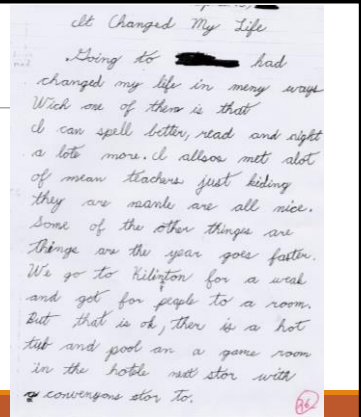 It Changed My Life
Going to had
changed my life in meny ways
Wich one of them is that
I can spell better, read and right
a lote more. I allsos met alot
of mean teachers just kiding
they are are all nice.
Some of the other thinges are
things are the year goes faster.
We go to Kilinton for a weak
and got for people to a room.
But that is ok, ther is a hot
tub and pool an a game room
in the hotole nest stor with
a convengons stor to.
36